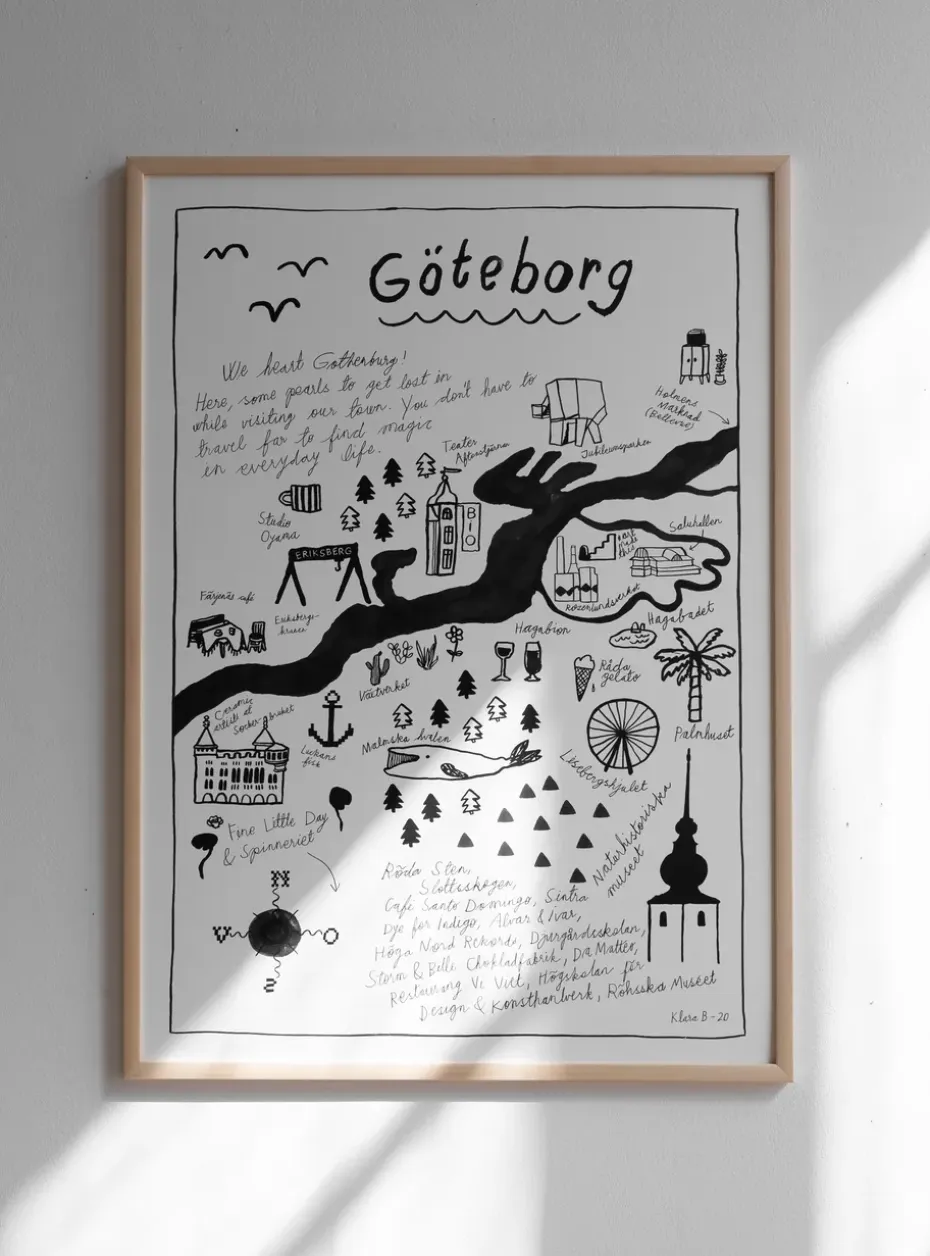 Göteborg
We heart Gothenburg!
Here, some pearls to get lost in
while visiting our town. You don't have to
travel far to find magic
in everyday life.
Holmens
Marknad
(Bellevue)
Jubileumsparken
Teater
Aftonstjärnan
BIO
Studio
Oyama
ERIKSBERG
Eriksbergs-
kranen
Färjenäs café
Saluhallen
art
inside
this
Rosenlundsverket
Hagabadet
Hagabion
Råda
gelato
Växtverket
Palmhuset
Ceramic
artists at
Sockerbruket
Luckans
fisk
Malmska valen
Lisebergshjulet
Naturhistoriska
museet
Fine Little Day
& Spinneriet
N
V O
S
Röda Sten,
Slottsskogen,
Café Santo Domingo, Sintra
Dye for Indigo, Alvar & Ivar,
Höga Nord Rekords, Djurgårdsskolan,
Storm & Belli Chokladfabrik, Da Matteo,
Restaurang Vi Viet, Högskolan för
Design & Konsthantverk, Röhsska Museet
Klara B - 20